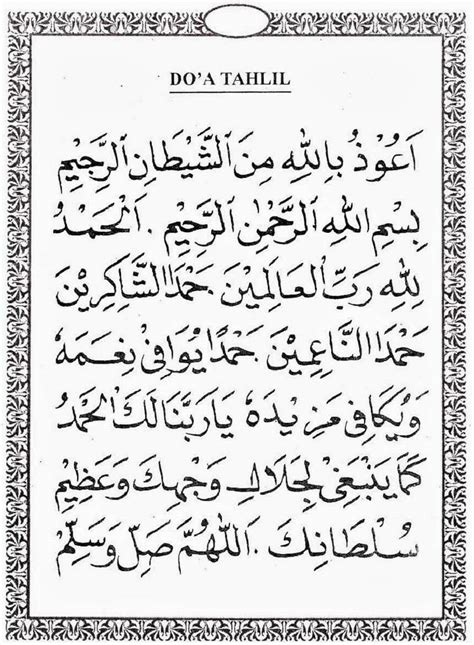 DO'A TAHLIL
اَعُوْذُ بِاللهِ مِنَ الشَّيْطَانِ الرَّجِيْمِ
بِسْمِ اللهِ الرَّحْمٰنِ الرَّحِيْمِ . اَلْحَمْدُ
لِلّٰهِ رَبِّ الْعَالَمِيْنَ . حَمْدَ الشَّاكِرِيْنَ
حَمْدَ النَّاعِمِيْنَ . حَمْدًا يُوَافِيْ نِعَمَهُ
وَيُكَافِيْ مَزِيْدَهُ يَا رَبَّنَا لَكَ الْحَمْدُ
كَمَا يَنْبَغِيْ لِجَلَالِ وَجْهِكَ وَعَظِيْمِ
سُلْطَانِكَ . اَللّٰهُمَّ صَلِّ وَسَلِّمْ